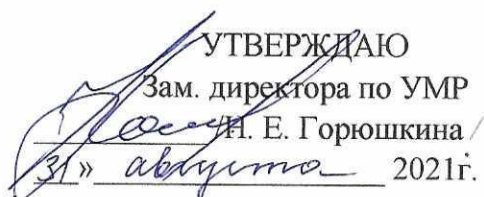 УТВЕРЖДАЮ
Зам. директора по УМР
Н. Е. Горюшкина
31» августа 2021г.